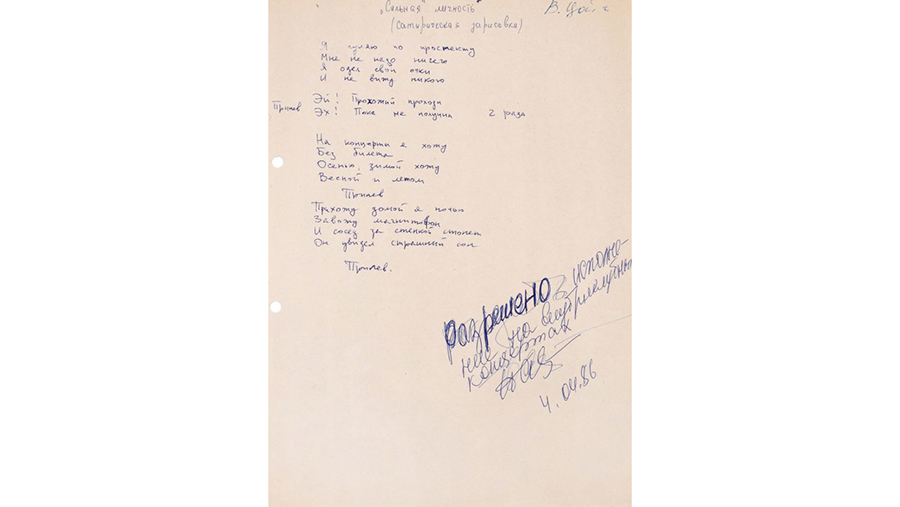 „Сильная" личность
В. Цой
(сатирическая зарисовка)
Я гуляю по проспекту
Мне не надо ничего
Я одел свои очки
И не вижу никого
Эй! Прохожий проходи
Припев Эх! Пока не получил 2 раза
На концерты я хожу
Без билета
Осенью, зимой хожу
Весной и летом
Припев
Прихожу домой я ночью
Завожу магнитофон
И сосед за стенкой стонет
Он увидел страшный сон
Припев.
Разрешено исполне-
ние на
концертах
4.04.86